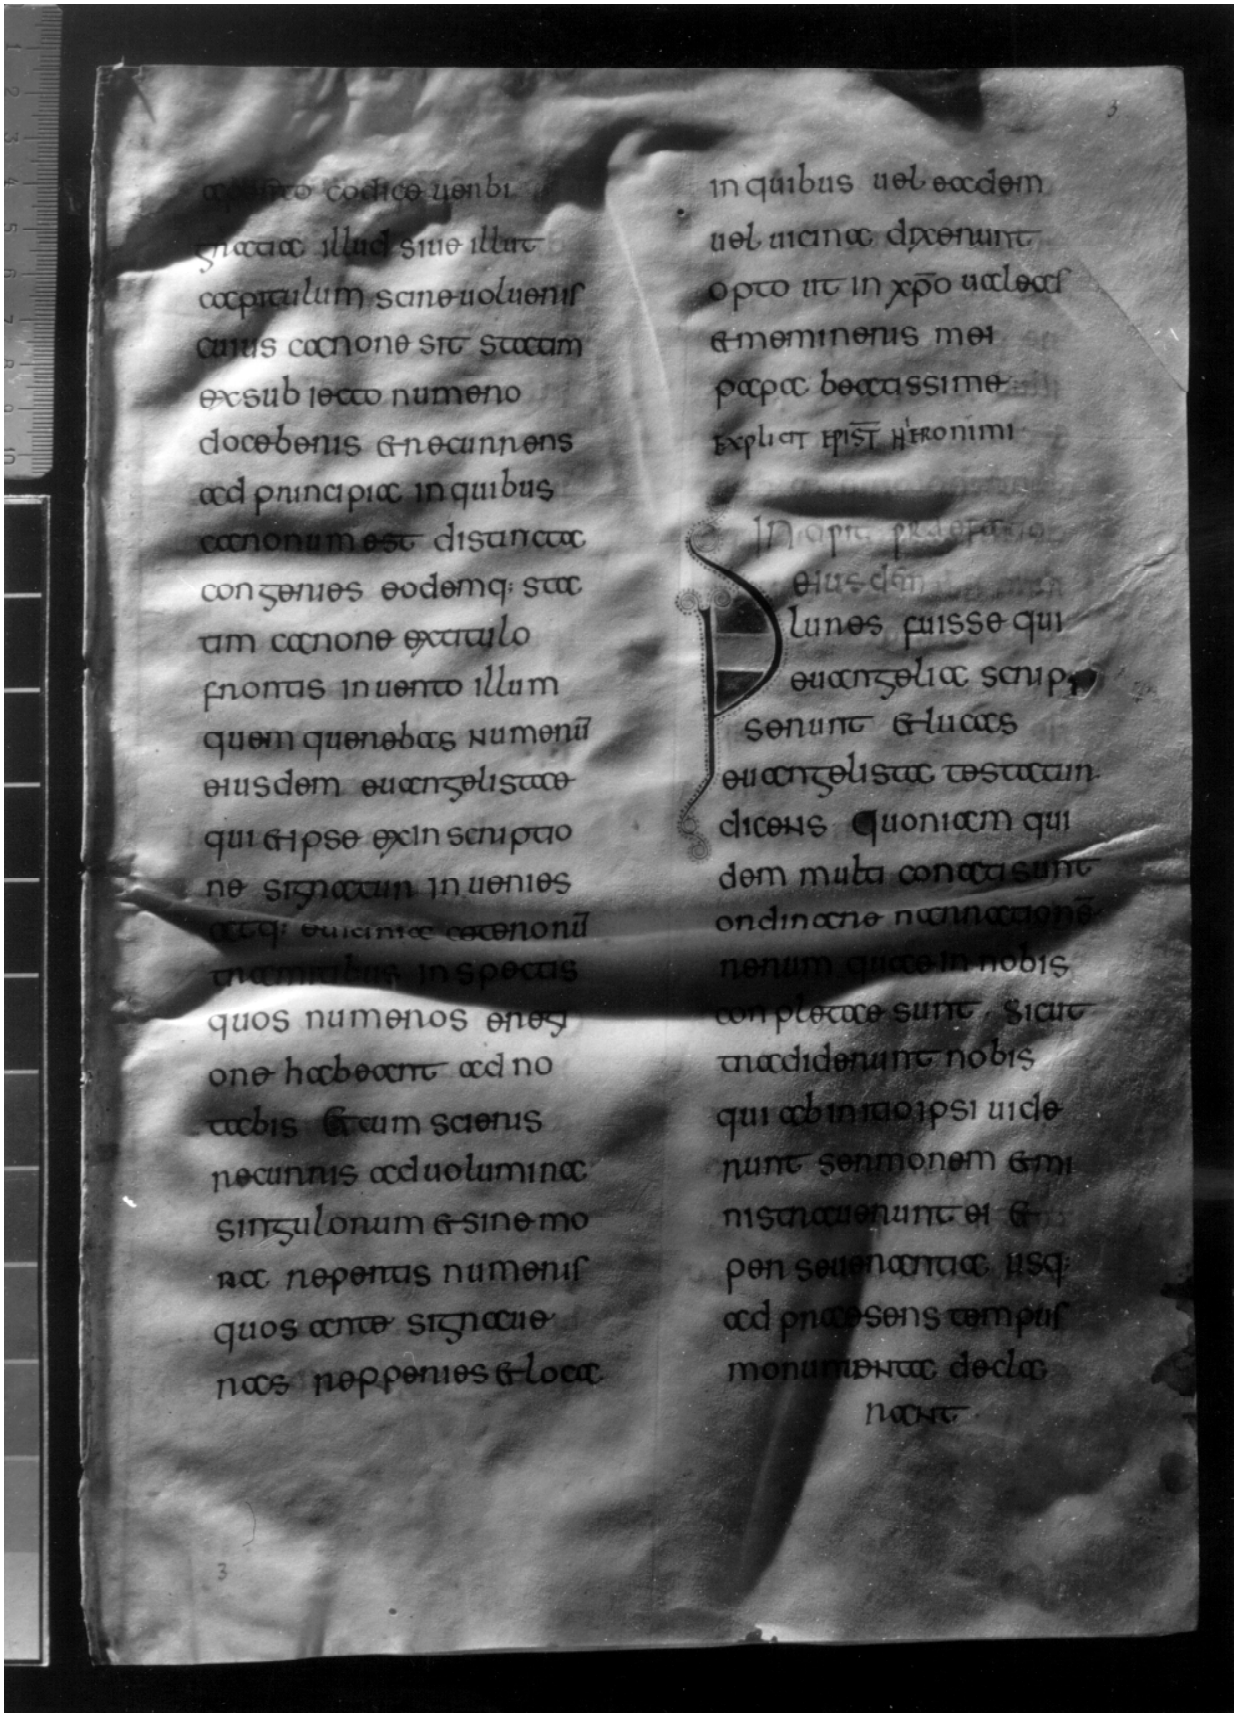 aperto codice uerbi
gratia illud siue illut
capitulum scire uolueris
cuius canone sit statim
ex subiecto numero
doceberis & recurrens
ad principia in quibus
canonum est distincta
congeries eodemq; sta
tim canone ex titulo
frontis inuento illum
quem querebas numerū
eiusdem euangelistae
qui & ipse ex inscriptio
ne signatur inuenies
atq;
tramitibus inspectis
quos numeros e regi
one habeant adno
tabis & cum scieris
recurris ad uolumina
singulorum & sine mo
ra repertis numeris
quos ante signaue
ras repperies & loca
in quibus uel eadem
uel uicina dixerunt
opto ut in xp̄o ualeas
& memineris mei
papa beatissime
explicit epist̄ hieronimi
Incipit praefatio
eiusdem
Plures fuisse qui
euangelia scrip
serunt & lucas
euangelista testatur
dicens Quoniam qui
dem multi conati sunt
ordinare narrationē
rerum quae in nobis
conpletae sunt. Sicut
tradiderunt nobis
qui ab initio ipsi uide
runt sermonem & mi
nistrauerunt ei &
per seuerantia usq;
ad praesens tempus
monumenta decla
rant.
5
3